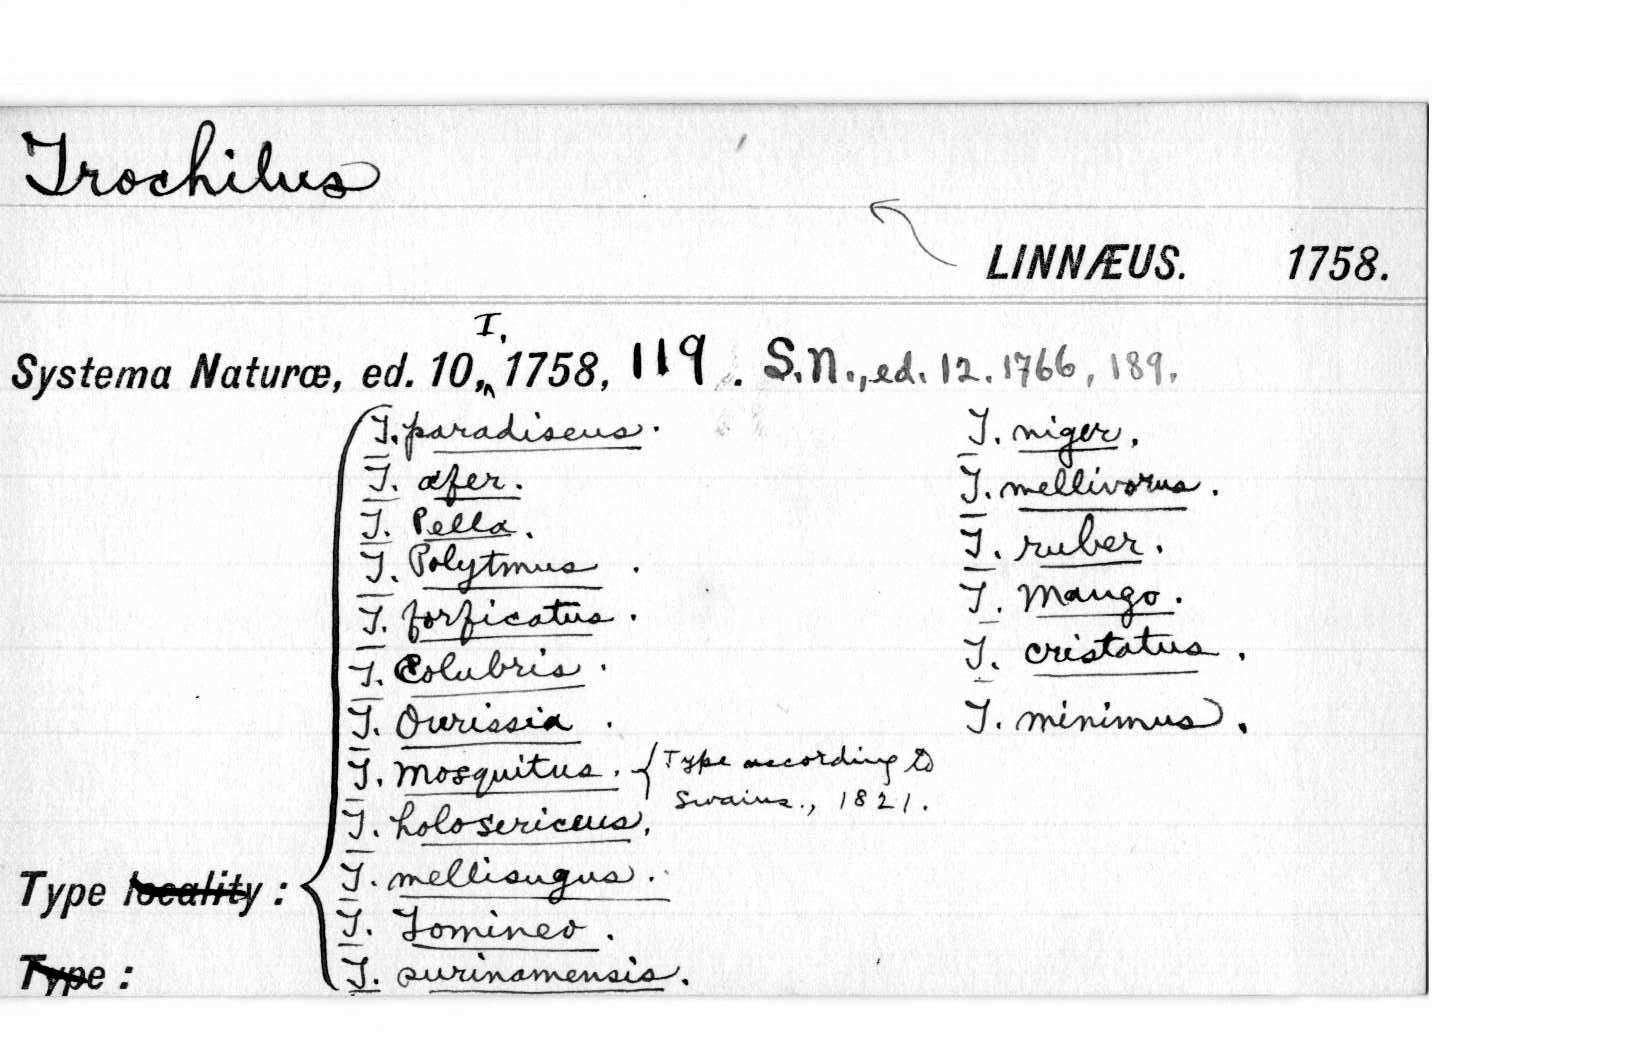 Trochilus
LINNÆUS. 1758.
I.
Systema Naturæ, ed. 10, 1758, 119. S.N., ed. 12. 1766, 189.
T. paradiseus.
T. afer.
T. Pella.
T. Polytmus.
T. forficatus.
T. Colubris.
T. Ourissia.
T. Mosquitus. { Type according to
Swains., 1821.
T. holosericeus.
Type locality : T. mellisugus.
T. Tomineo.
Type : T. surinamensis.
T. niger.
T. mellivorus.
T. ruber.
T. Mango.
T. cristatus.
T. minimus.